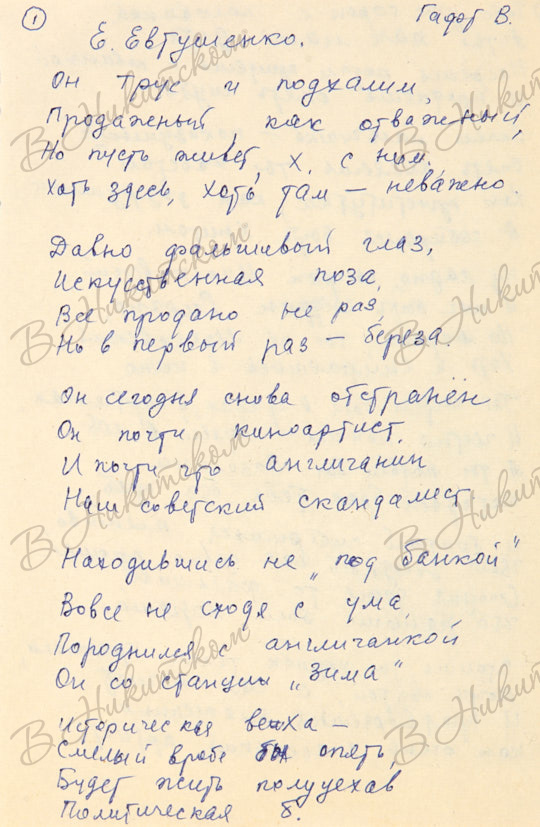 ① Гафт В.
Е. Евтушенко.
Он трус и подхалим,
Продажный как отважный,
Но пусть живет, х. с ним.
Хоть здесь, хоть там – неважно.
Давно фальшивый глаз,
Искусственная поза,
Все продано не раз,
Но в первый раз – береза.
Он сегодня снова отстранён
Он почти киноартист.
И почти что англичанин
Наш советский скандалист
Находившись не „под банкой“
Вовсе не сходя с ума,
Породнился с англичанкой
Он со станции „Зима“
Историческая веха –
Смелый вроде бы опять,
Будет жить полууехав
Политическая б.
В Никитском
В Никитском
В Никитском
В Никитском
В Никитском
В Никитском
В Никитском
В Никитском
В Никитском
В Никитском